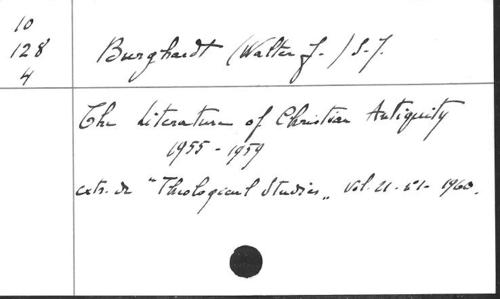 10
128
4
Burghardt (Walter J.) S.J.
The Literature of Christian Antiquity
1955 - 1959
extr. de "Theological Studies" Vol. 21 - 1960.